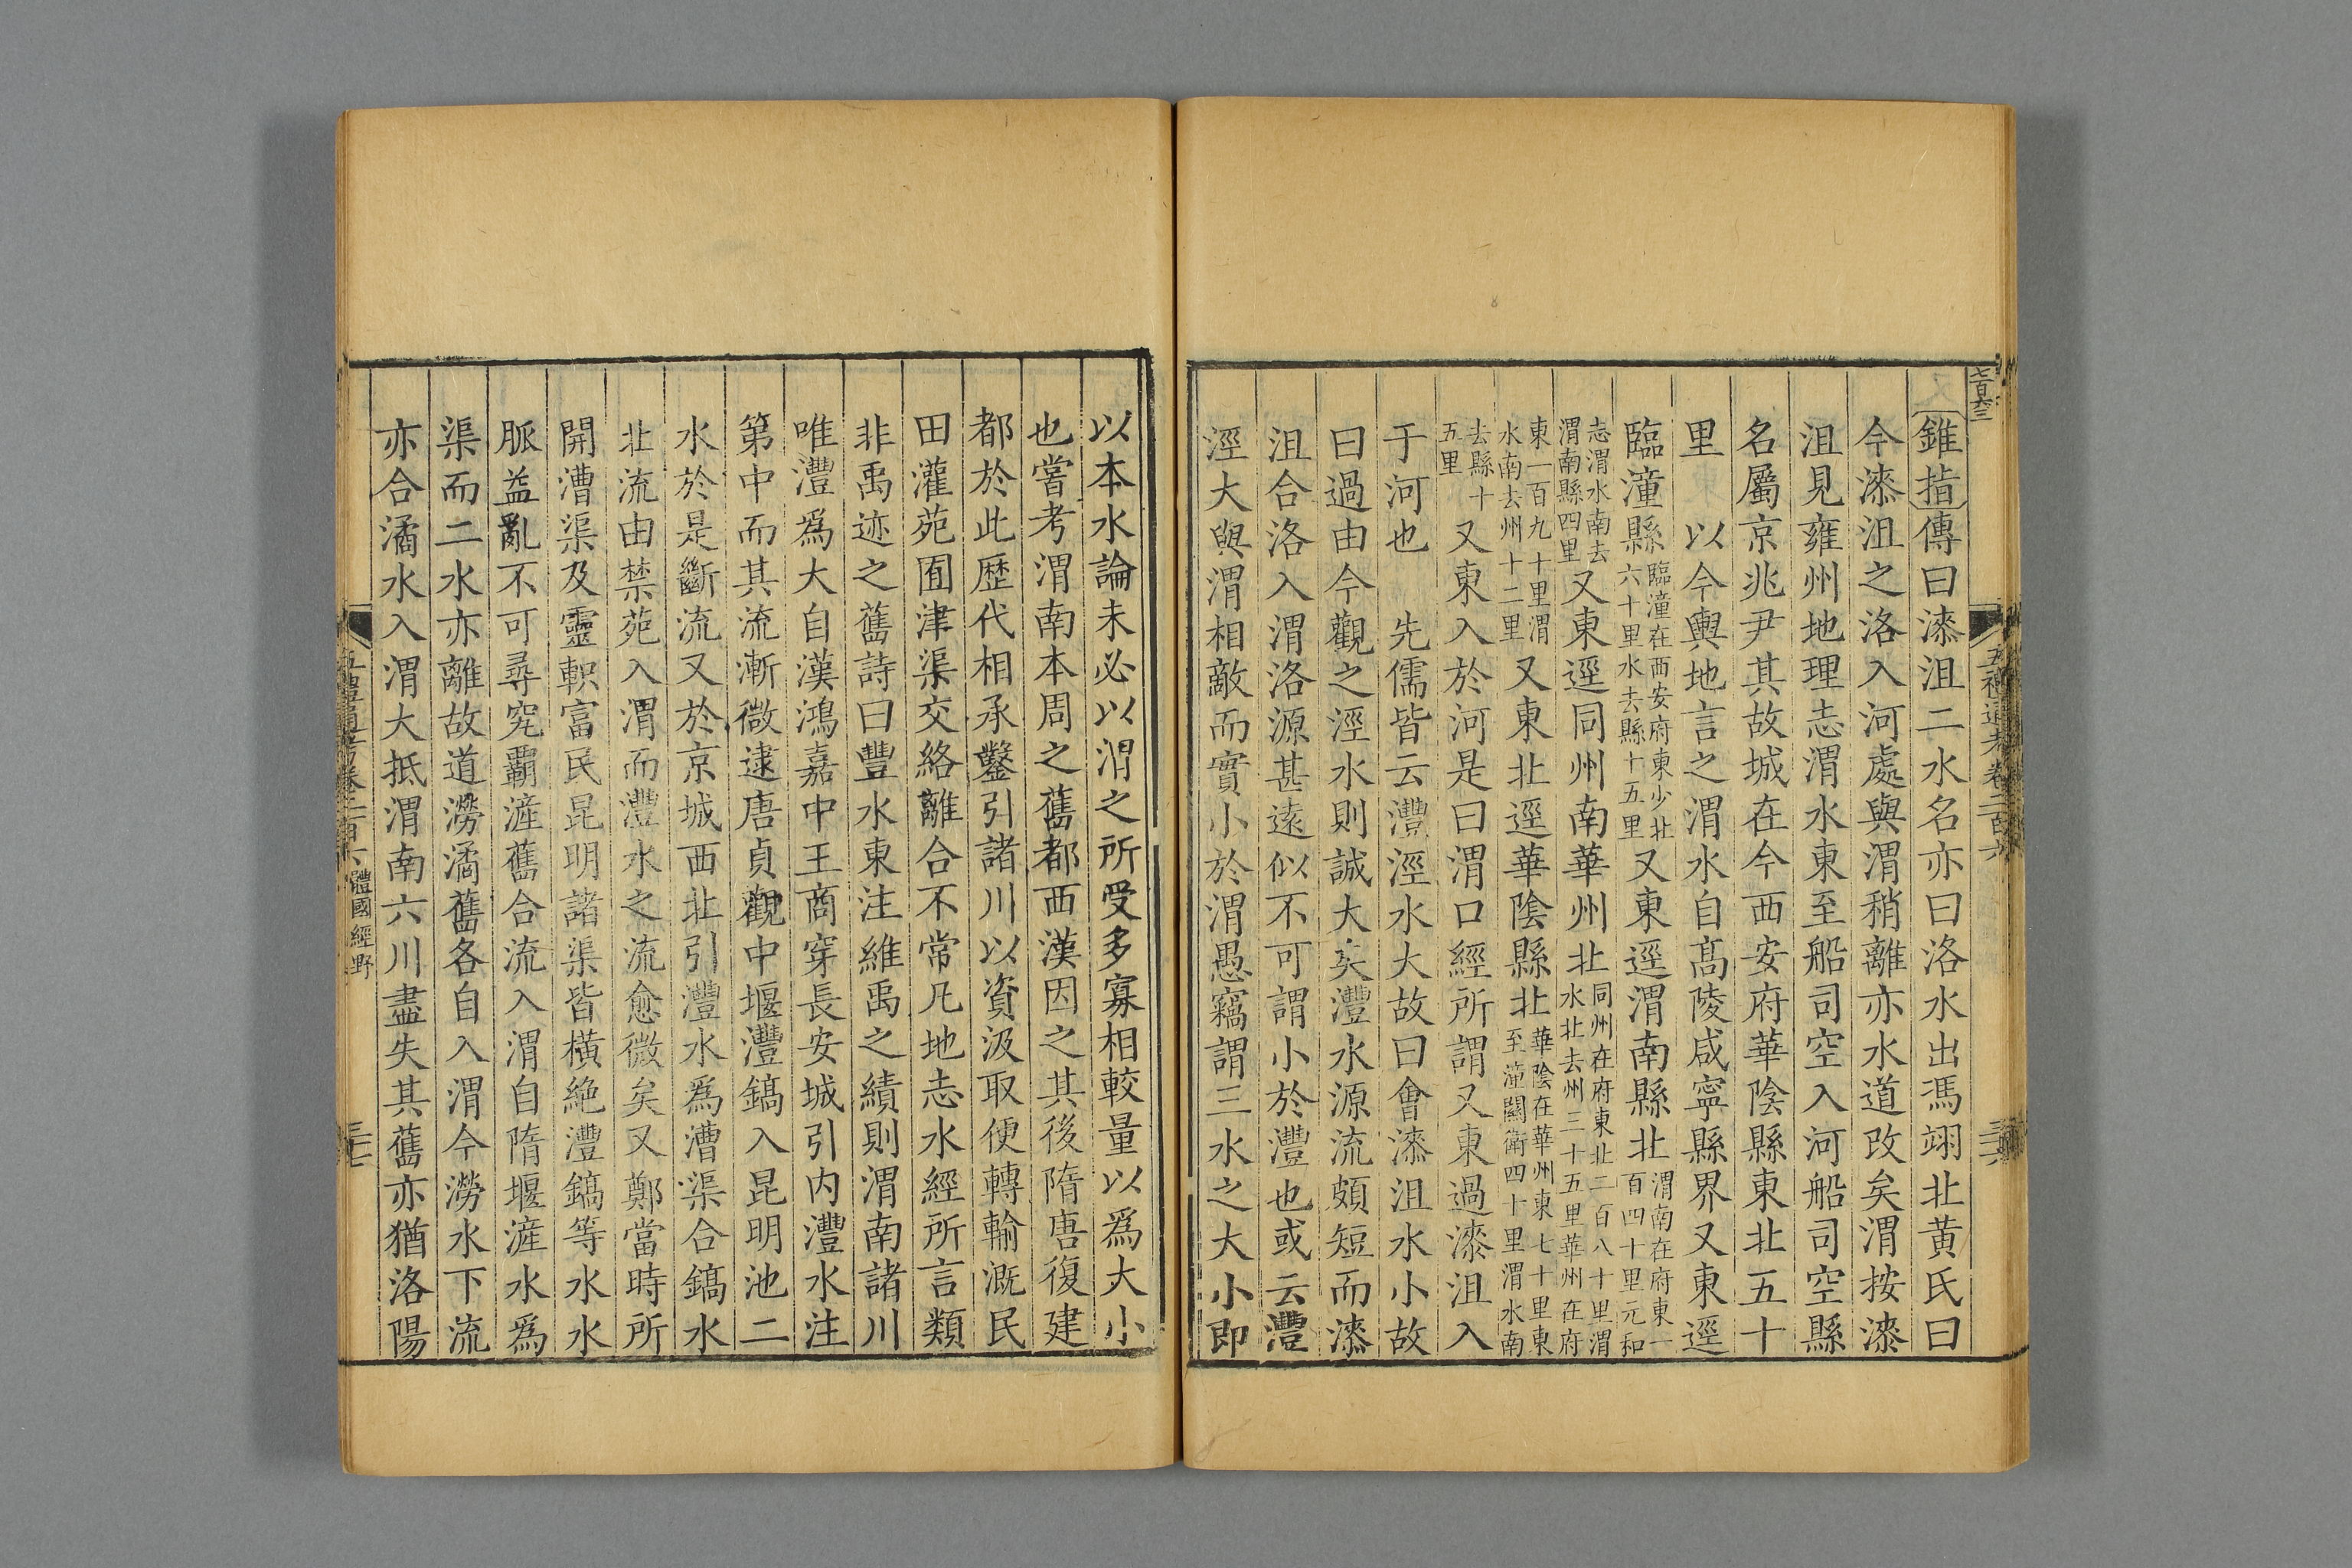 七百六三
五禮通考卷二百六
錐指傳曰漆沮二水名亦曰洛水出馮翊北黄氏曰
今漆沮之洛入河處與渭稍離亦水道改矣渭按漆
沮見雍州地理志渭水東至船司空入河船司空縣
名屬京兆尹其故城在今西安府華陰縣東北五十
里 以今輿地言之渭水自髙陵咸寧縣界又東逕
臨潼縣臨潼在西安府東少北六十里水去縣十五里又東逕渭南縣北渭南在府東一百四十里元和
志渭水南去渭南縣四里又東逕同州南華州北同州在府東北二百八十里渭水北去州三十五里華州在府
東一百九十里渭水南去州十二里又東北逕華陰縣北華陰在華州東七十里東至潼關衛四十里渭水南
去縣十五里又東入於河是曰渭口經所謂又東過漆沮入
于河也 先儒皆云灃涇水大故曰會漆沮水小故
曰過由今觀之涇水則誠大矣灃水源流頗短而漆
沮合洛入渭洛源甚遠似不可謂小於灃也或云灃
涇大與渭相敵而實小於渭愚竊謂三水之大小即
以本水論未必以渭之所受多寡相較量以爲大小
也嘗考渭南本周之舊都西漢因之其後隋唐復建
都於此歴代相承鑿引諸川以資汲取便轉輸溉民
田灌苑囿津渠交絡離合不常凡地志水經所言類
非禹迹之舊詩曰豐水東注維禹之績則渭南諸川
唯灃爲大自漢鴻嘉中王商穿長安城引内灃水注
第中而其流漸微逮唐貞觀中堰灃鎬入昆明池二
水於是斷流又於京城西北引灃水爲漕渠合鎬水
北流由禁苑入渭而灃水之流愈微矣又鄭當時所
開漕渠及靈軹富民昆明諸渠皆横絶灃鎬等水水
脈益亂不可尋究霸滻舊合流入渭自隋堰滻水爲
渠而二水亦離故道澇潏舊各自入渭今澇水下流
亦合潏水入渭大抵渭南六川盡失其舊亦猶洛陽
五禮通考卷二百六 體國經野
三七